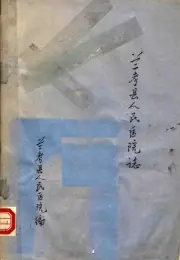 兰考县人民医院志
兰考县人民医院编